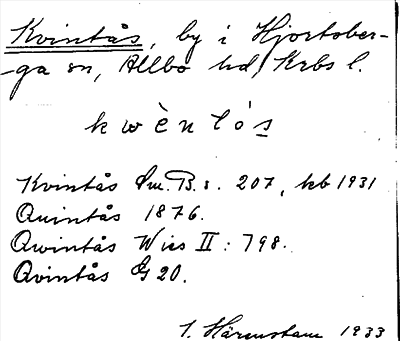 Kvintås, by i Hjortsber-
-ga sn, Allbo hd, Krbs l.
kwènlós
Kvintås Sm. B. s. 207, kb 1931
Quintås 1876.
Qwintås Wies II: 798.
Qvintås G 20.
1933